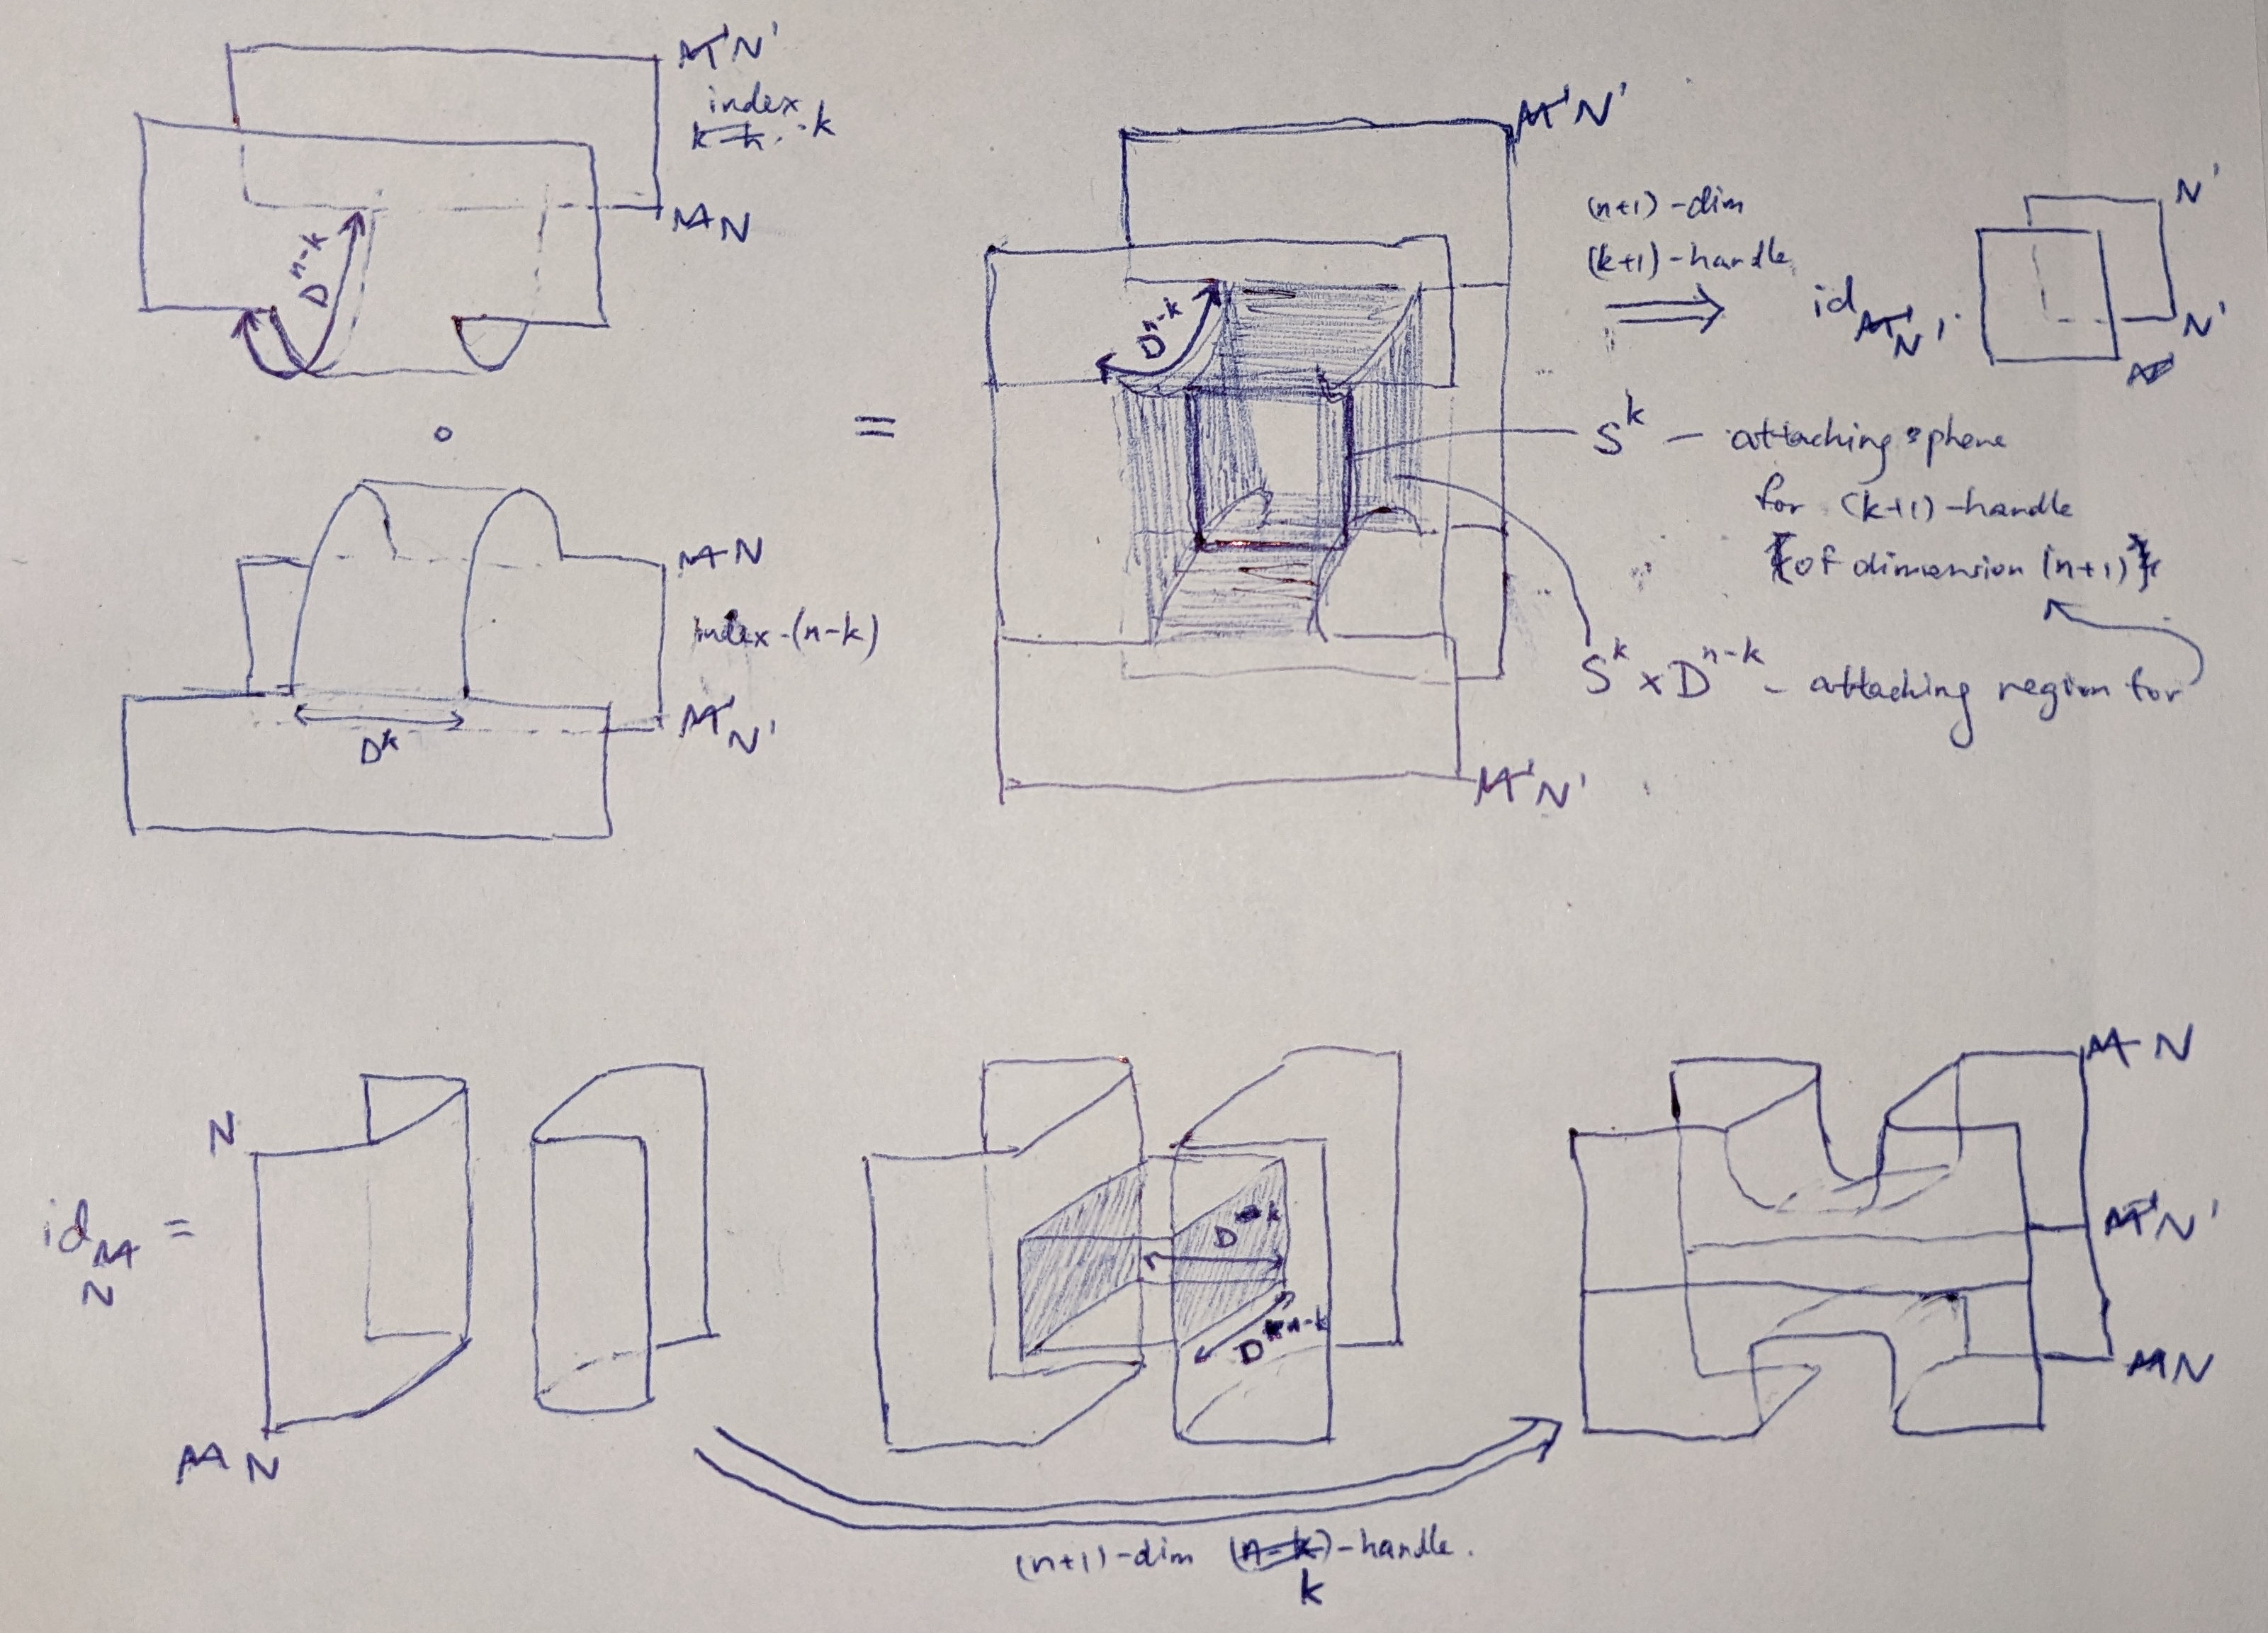 N'
index
k
N
D^{n-k}
N
index-(n-k)
N'
D^k
=
N'
D^{n-k}
(n+1)-dim
(k+1)-handle
id_{N'}
N'
N'
S^k — attaching sphere
for (k+1)-handle
(of dimension (n+1))
S^k × D^{n-k} - attaching region for
N'
N
id_N =
N
D^k
D^{n-k}
N
N'
N
(n+1)-dim k-handle.